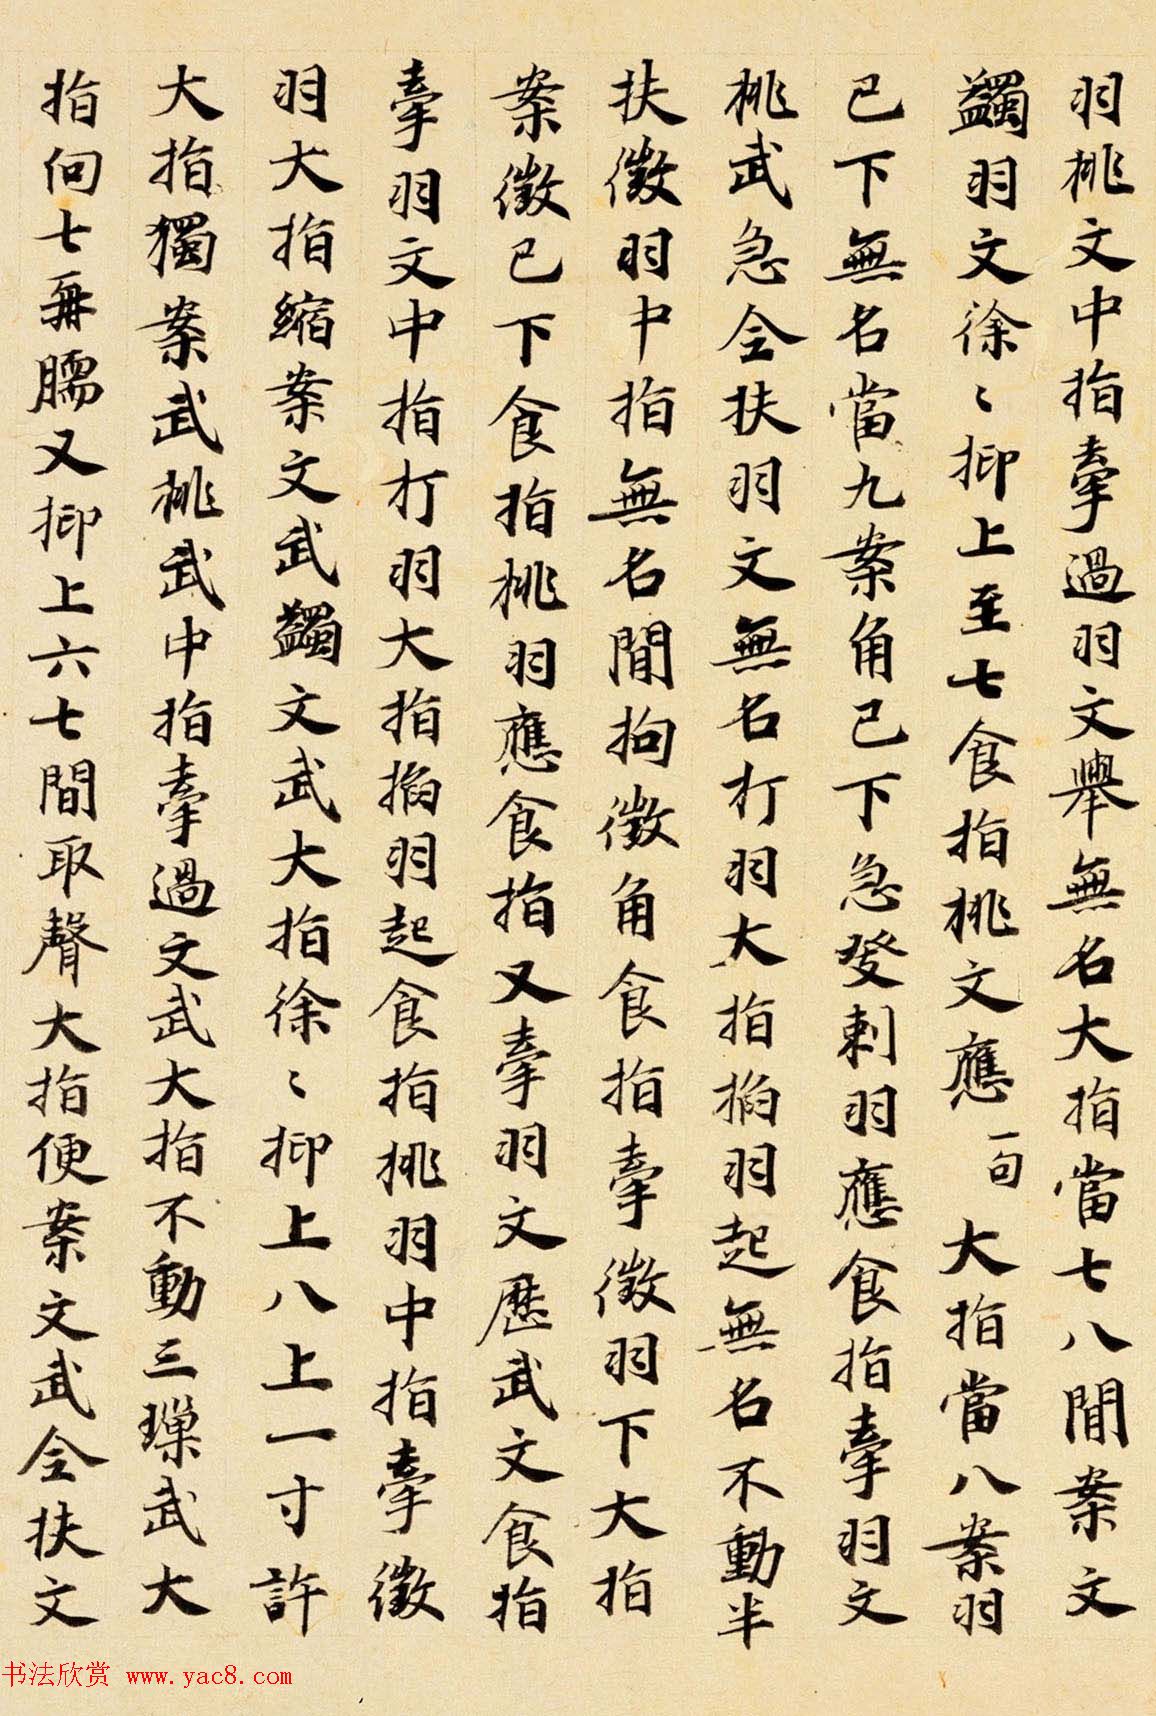 羽桃文中指牽過羽文舉無名大指當七八間案文
蠲羽文徐〻抑上至七食指桃文應一句大指當八案羽
已下無名當九案角已下急發剌羽應食指牽羽文
桃武急全扶羽文無名打羽大指掐羽起無名不動半
扶徵羽中指無名間拘徵角食指牽徵羽下大指
案徵已下食指桃羽應食指又牽羽文歷武文食指
牽羽文中指打羽大指掐羽起食指挑羽中指牽徵
羽大指縮案文武蠲文武大指徐〻抑上八上一寸許
大指獨案武桃武中指牽過文武大指不動三璅武大
指向七耎臑又抑上六七間取聲大指便案文武全扶文
书法欣赏 www.yac8.com